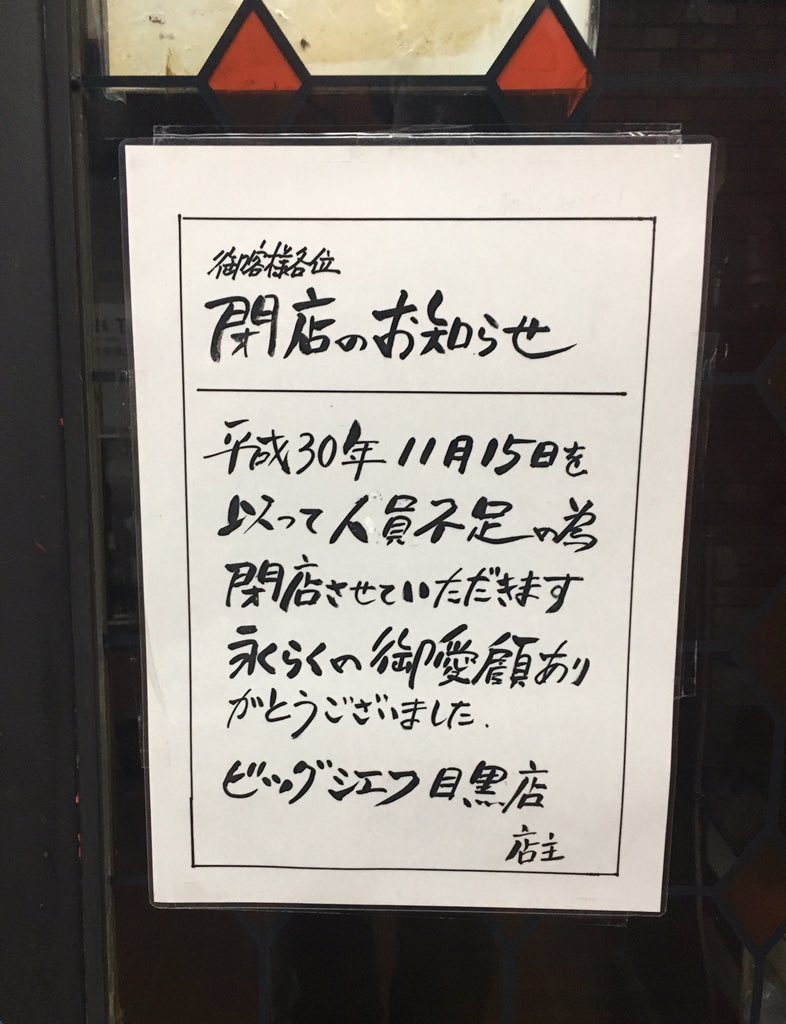 御客様各位
閉店のお知らせ
平成30年11月15日を
以って人員不足の為
閉店させていただきます
永らくの御愛顧あり
がとうございました.
ビッグシェフ目黒店
店主